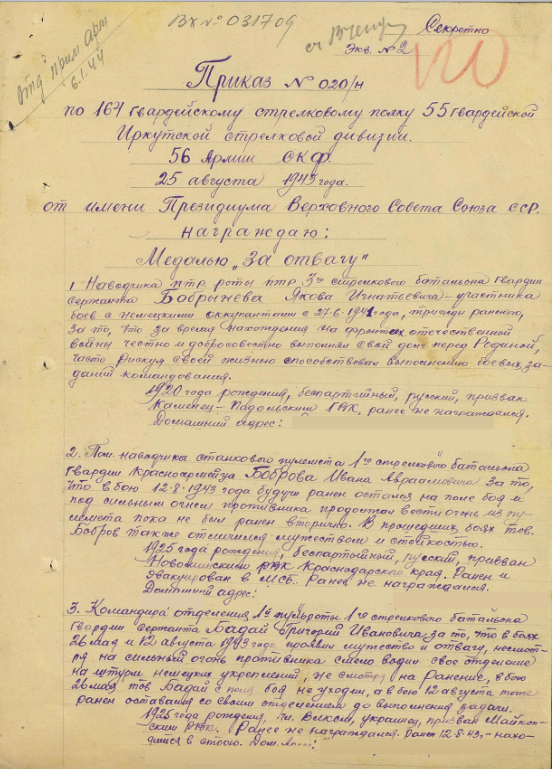 Вх № 031709
Секретно
Экз. № 2
отд. прим. арм
6.1.44
Приказ № 020/н
по 164 гвардейскому стрелковому полку 55 гвардейской
Иркутской стрелковой дивизии.
56 Армии СКФ.
25 августа 1943 года.
от имени Президиума Верховного Совета Союза ССР.
награждаю:
Медалью „За отвагу"
1. Наводчика птр роты птр 3го стрелкового батальона гвардии
сержанта Бобрышева Якова Игнатьевича - участника
боев с немецкими оккупантами с 27.6.1941 года, трижды раненого,
за то, что за время нахождения на фронтах отечественной
войны честно и добросовестно выполнял свой долг перед Родиной,
часто рискуя своей жизнью способствовал выполнению боевых за-
даний командования.
1920 года рождения, беспартийный, русский, призван
Каменец-Падольским ГВК, ранее не награждался.
Домашний адрес:
2. Пом. наводчика станкового пулемета 1го стрелкового батальона
гвардии красноармейца Боброва Ивана Авраамовича за то,
что в бою 12.8.1943 года будучи ранен остался на поле боя и
под сильным огнем противника продолжал вести огонь из пу-
лемета пока не был ранен вторично. В прошедших боях тов.
Бобров также отличился мужеством и стойкостью.
1925 года рождения, беспартийный, русский, призван
РВК Краснодарского края. Ранен и
эвакуирован в МСБ. Ранее не награждался.
Домашний адрес:
3. Командира отделения 1й пульроты 1го стрелкового батальона
гвардии сержанта Бадай Григорий Ивановича за то, что в боях
26 мая и 12 августа 1943 года проявил мужество и отвагу, несмот-
ря на сильный огонь противника смело водил свое отделение
на штурм немецких укреплений, не смотря на ранение, в бою
26 мая тов Бадай с поля боя не уходил, а в бою 12 августа тоже
ранен оставался со своим отделением до выполнения задачи.
1925 года рождения, чл. ВЛКСМ, украинец, призван Майкоп-
ским РВК. Ранее не награждался. Ранен 12.8.43, - нахо-
дился в строю. Дом. адрес: